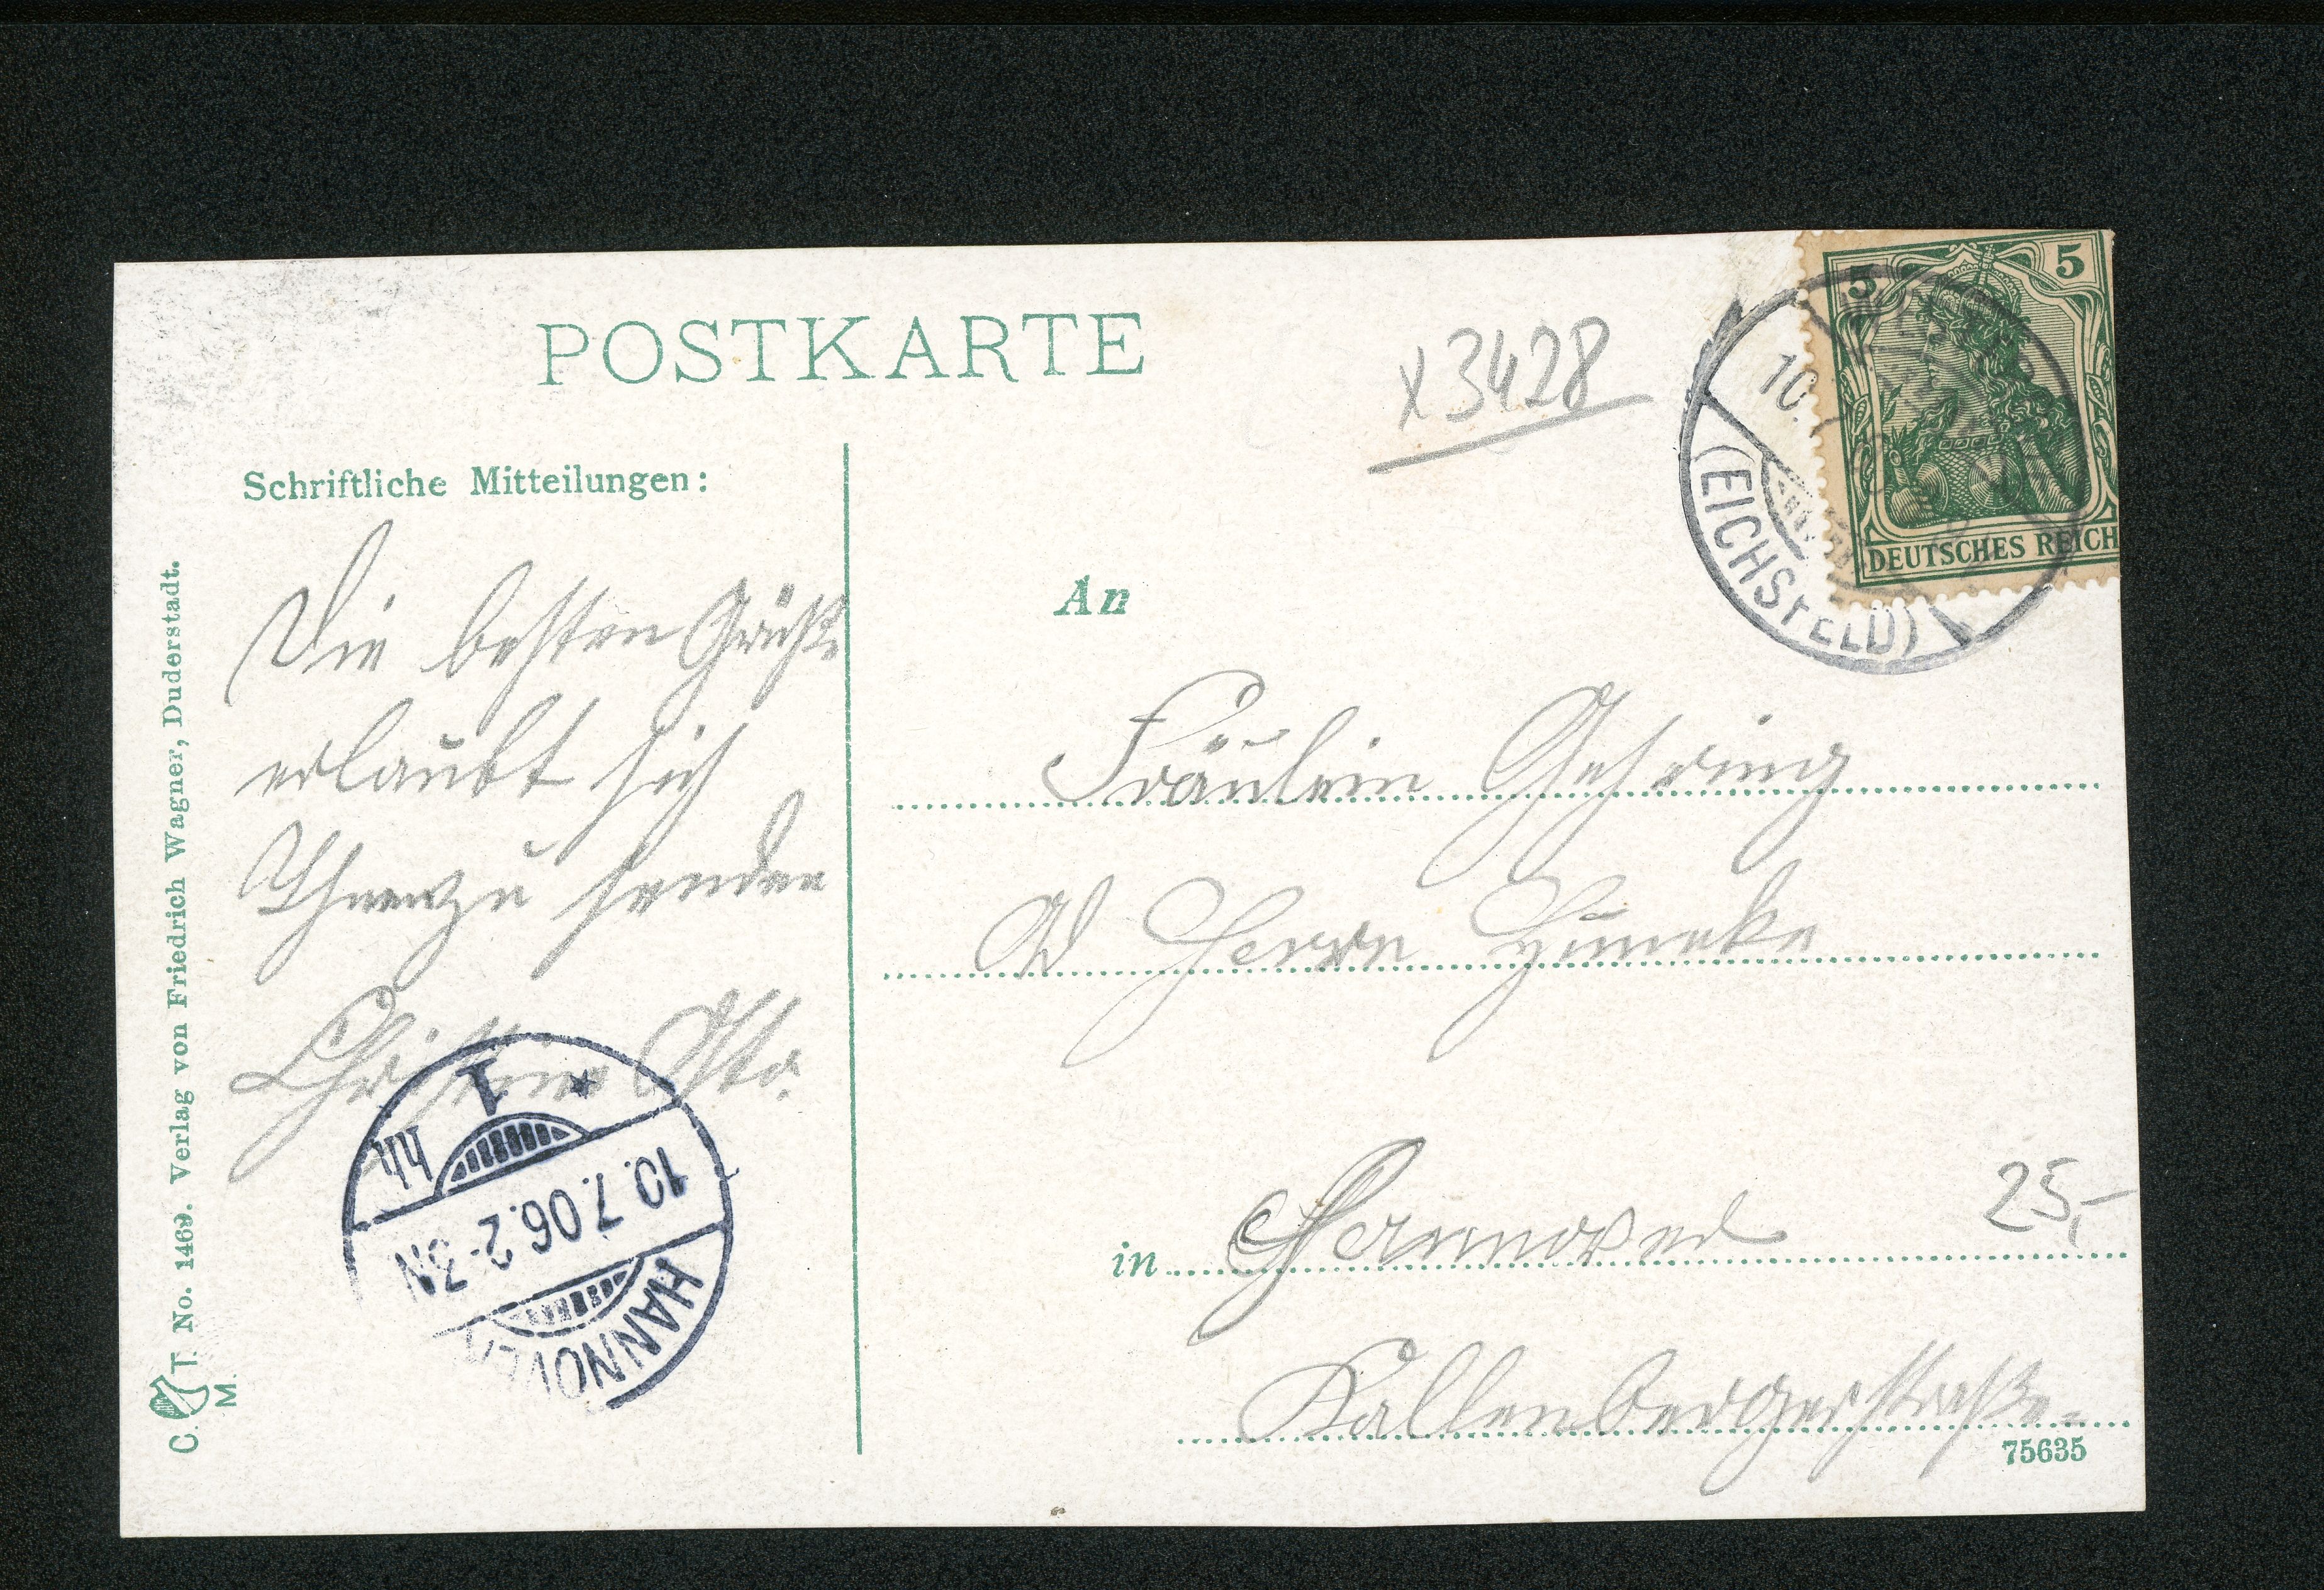 POSTKARTE
x 3428
5
5
DEUTSCHES REICH
10.
(EICHSFELD)
Schriftliche Mitteilungen:
Die besten Grüße
erlaubt sich
Ihnen zu senden
Christine Otto.
An
Fräulein Gehring
Herrn Hüneke
in Hannover
Kallenbergerstraße
25,-
75635
HANNOVER
10.7.06.2-3N
1
*
C. T. M. No. 1469. Verlag von Friedrich Wagner, Duderstadt.